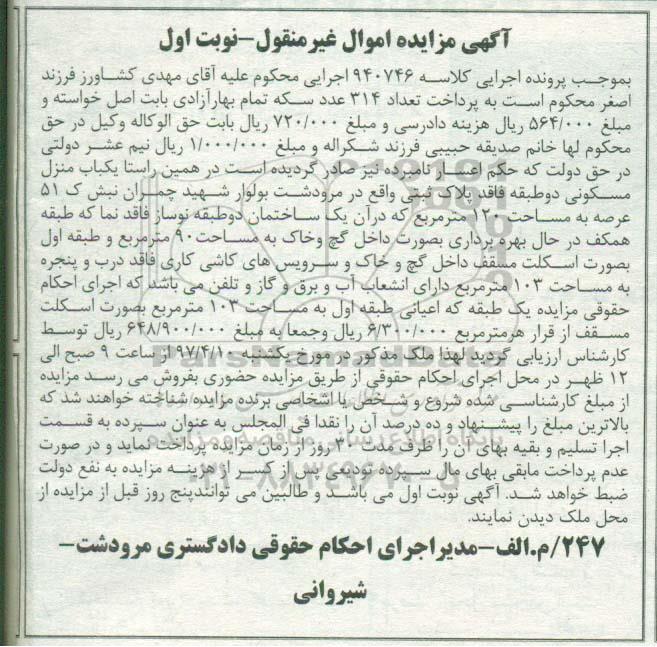 آگهی مزایده اموال غیرمنقول-نوبت اول
بموجب پرونده اجرایی کلاسه ۹۴۰۷۴۶ اجرایی محکوم علیه آقای مهدی کشاورز فرزند
اصغر محکوم است به پرداخت تعداد ۳۱۴ عدد سکه تمام بهارآزادی بابت اصل خواسته و
مبلغ ۵۶۴/۰۰۰ ریال هزینه دادرسی و مبلغ ۷۲۰/۰۰۰ ریال بابت حق الوکاله وکیل در حق
محکوم لها خانم صدیقه حبیبی فرزند شکراله و مبلغ ۱/۰۰۰/۰۰۰ ریال نیم عشر دولتی
در حق دولت که حکم اعسار نامبرده نیز صادر گردیده است در همین راستا یکباب منزل
مسکونی دوطبقه فاقد پلاک ثبتی واقع در مرودشت بولوار شهید چمران نبش ک ۵۱
عرصه به مساحت ۱۲۰ مترمربع که درآن یک ساختمان دوطبقه نوساز فاقد نما که طبقه
همکف در حال بهره برداری بصورت داخل گچ وخاک به مساحت۹۰ مترمربع و طبقه اول
بصورت اسکلت مسقف داخل گچ و خاک و سرویس های کاشی کاری فاقد درب و پنجره
به مساحت ۱۰۳ مترمربع دارای انشعاب آب و برق و گاز و تلفن می باشد که اجرای احکام
حقوقی مزایده یک طبقه که اعیانی طبقه اول به مساحت ۱۰۳ مترمربع بصورت اسکلت
مسقف از قرار هرمترمربع ۶/۳۰۰/۰۰۰ ریال وجمعا به مبلغ ۶۴۸/۹۰۰/۰۰۰ ریال توسط
کارشناس ارزیابی گردید لهذا ملک مذکور در مورخ یکشنبه ۹۷/۴/۱۰ از ساعت ۹ صبح الی
۱۲ ظهر در محل اجرای احکام حقوقی از طریق مزایده حضوری بفروش می رسد مزایده
از مبلغ کارشناسی شده شروع و شخص یا اشخاصی برنده مزایده شناخته خواهند شد که
بالاترین مبلغ را پیشنهاد و ده درصد آن را نقدا فی المجلس به عنوان سپرده به قسمت
اجرا تسلیم و بقیه بهای آن را ظرف مدت ۳۰ روز از زمان مزایده پرداخت نماید و در صورت
عدم پرداخت مابقی بهای مال سپرده تودیعی پس از کسر از هزینه مزایده به نفع دولت
ضبط خواهد شد. آگهی نوبت اول می باشد و طالبین می توانندپنج روز قبل از مزایده از
محل ملک دیدن نمایند.
۲۴۷/م.الف-مدیراجرای احکام حقوقی دادگستری مرودشت-
شیروانی